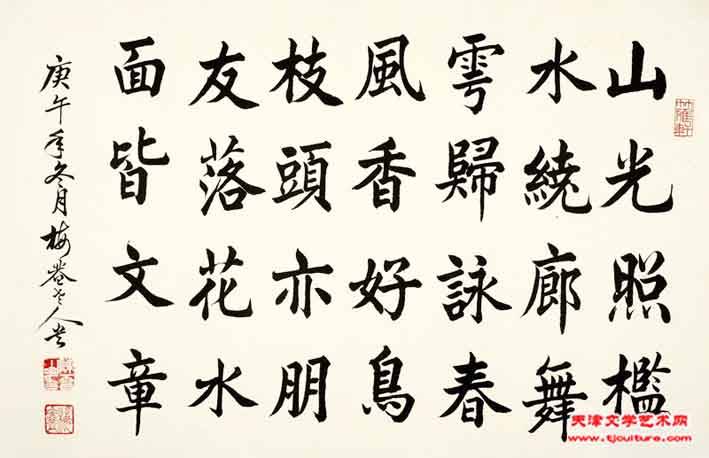 山光照檻
水繞廊舞
雩歸詠春
風香好鳥
枝頭亦朋
友落花水
面皆文章
庚午年冬月梅菴老人
天津文学艺术网
www.tjculture.com